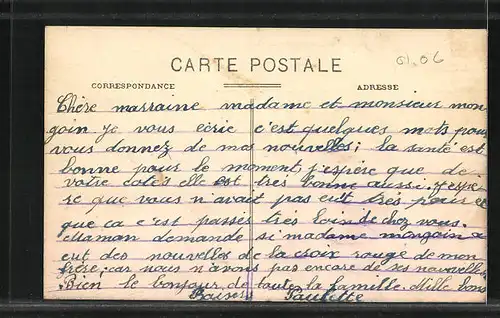 01.06
CARTE POSTALE
CORRESPONDANCE
ADRESSE
Chère marraine madame et monsieur mon
goin je vous écrie c'est quelques mots pour
vous donnez de mes nouvelles; la santé est
bonne pour le moment j'espère que de
votre cotés elle est très bonne aussi. j'espe
re que vous n'avait pas eut très peur et
que ca c'est passés très loin de chez vous.
Maman demande si madame mongoin a
eut des nouvelles de la croix rouge de mon
frère car nous n'avons pas encore de ses nouvelles
Bien le bonjour de toute la famille Mille bons
Baisers Paulette